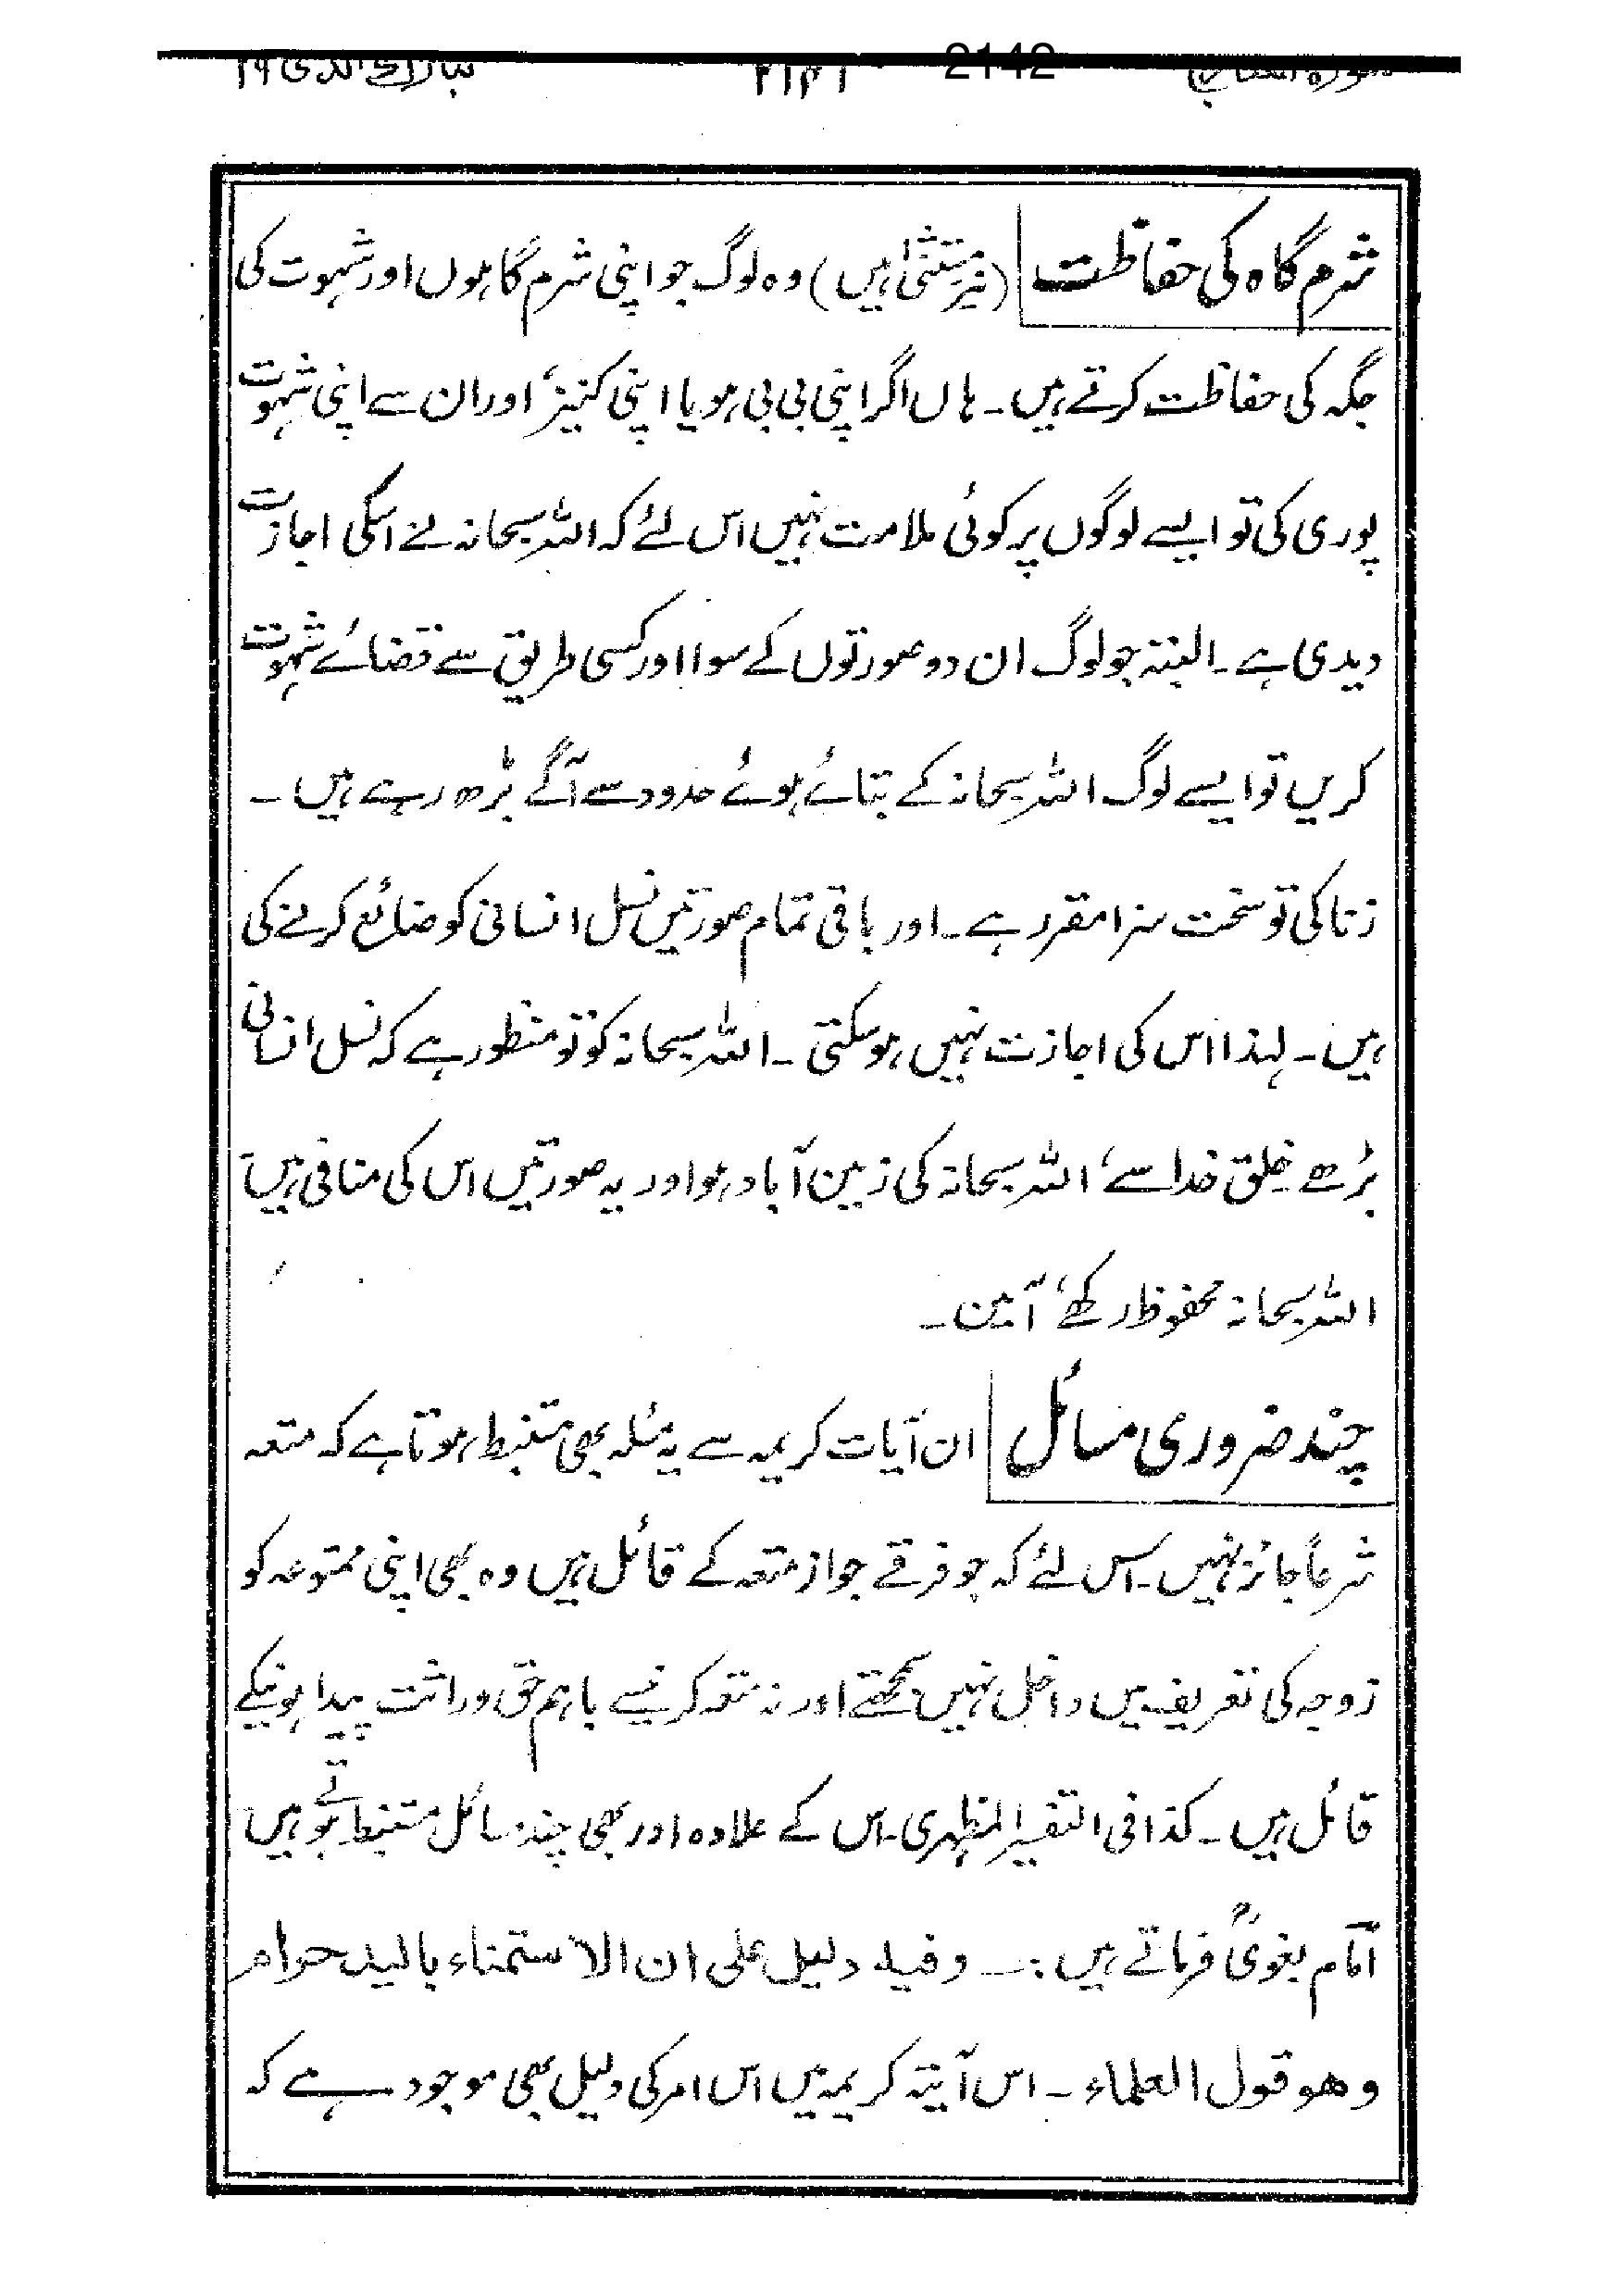 تبارك الذی ۲۹ ۲۱۴۱ 2142
شرم گاہ کی حفاظت (نیز مستثنیٰ ہیں) وہ لوگ جو اپنی شرم گاہوں اور شہوت کی
جگہ کی حفاظت کرتے ہیں۔ ہاں اگر اپنی بی بی ہو یا اپنی کنیز، اور ان سے اپنی شہوت
پوری کی تو ایسے لوگوں پر کوئی ملامت نہیں اس لئے کہ اللہ سبحانہ نے اسکی اجازت
دیدی ہے۔ البتہ جو لوگ ان دو عورتوں کے سوا اور کسی طریق سے قضائے شہوت
کریں تو ایسے لوگ اللہ سبحانہ کے بتائے ہوئے حدود سے آگے بڑھ رہے ہیں۔
زنا کی تو سخت سزا مقرر ہے۔ اور باقی تمام صورتیں نسل انسانی کو ضائع کرنے کی
ہیں۔ لہذا اس کی اجازت نہیں ہو سکتی۔ اللہ سبحانہ کو تو منظور ہے کہ نسل انسانی
بڑھے خلق خدا سے، اللہ سبحانہ کی زمین آباد ہو اور یہ صورتیں اس کی منافی ہیں
اللہ سبحانہ محفوظ رکھے، آمین۔
چند ضروری مسائل ان آیات کریمہ سے یہ مسئلہ بھی مستنبط ہوتا ہے کہ متعہ
شرعاً جائز نہیں۔ اس لئے کہ جو فرقے جواز متعہ کے قائل ہیں وہ بھی اپنی ممتوعہ کو
زوجہ کی تعریف میں داخل نہیں سمجھتے اور نہ متعہ کرنیسے باہم حق وراثت پیدا ہونیکے
قائل ہیں۔ کذا فی التفسیر المظہری۔ اس کے علاوہ اور بھی چند مسائل مستنبط ہوتے ہیں
امام بغویؒ فرماتے ہیں :۔ وفیه دلیل علی ان الاستمناء بالید حرام
وهو قول العلماء۔ اس آیتہ کریمہ میں اس امر کی دلیل بھی موجود ہے کہ